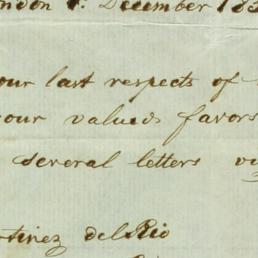 ndon 1. December 183
our last respects of
your valued favors
several letters
rtinez del Rio